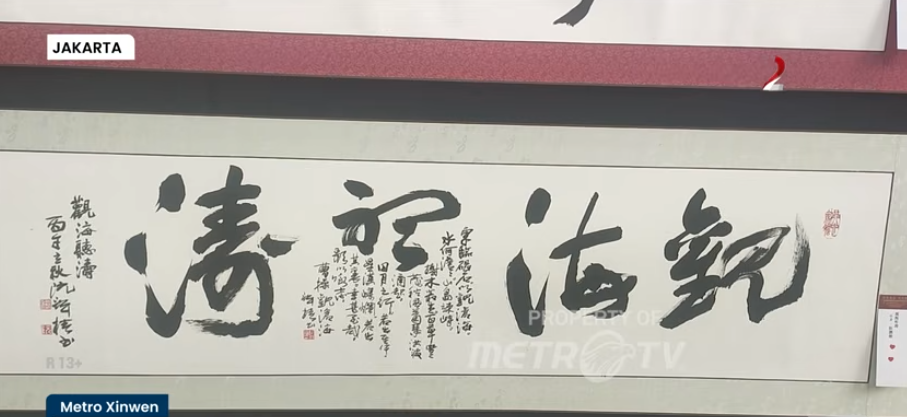 JAKARTA
觀海聽濤
東臨碣石以觀滄海
水何澹澹山島竦峙
樹木叢生百草豐
茂秋風蕭瑟洪波
湧起
日月之行若出其中
星漢燦爛若出
其裏幸甚至哉
歌以詠志
曹操觀滄海
觀海聽濤
PROPERTY OF
METRO TV
R13+
Metro Xinwen